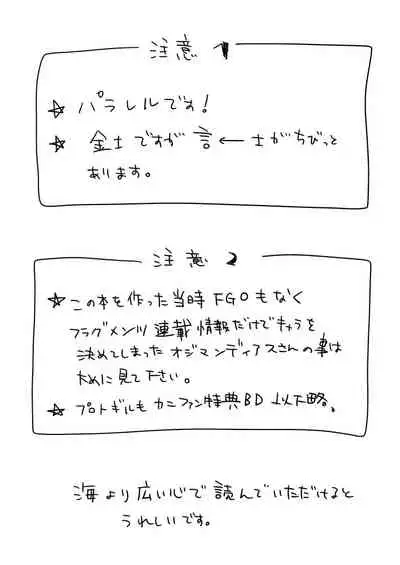 注意 1
☆ パラレルです!
☆ 金士ですが 言 ← 士がちびっと
あります。
注意 2
☆ この本を作った当時 FGOもなく
フラグメンツ 連載 情報だけでキャラを
決めてしまった オジマンディアスさんの事は
大めに見て下さい。
☆ プロトギルも カニファン特典BD 以下略。
海より広い心で 読んでいただけると
うれしいです。